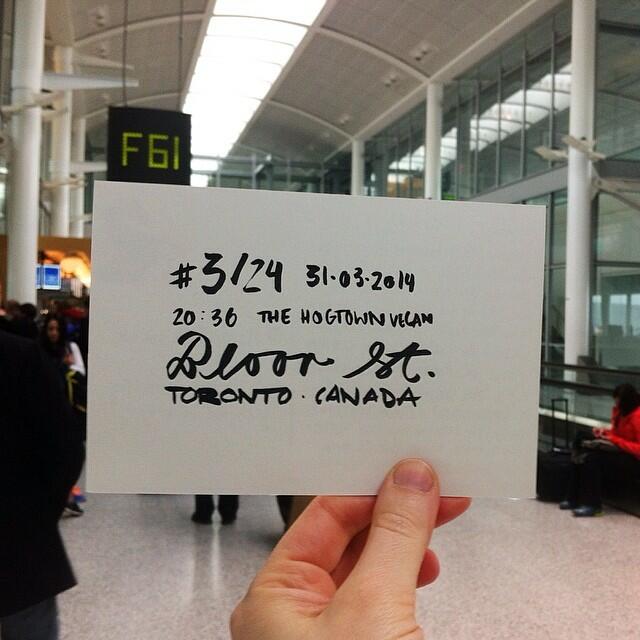 F61
#3/24 31·03·2014
20:36 THE HOGTOWN VEGAN
Bloor St.
TORONTO · CANADA